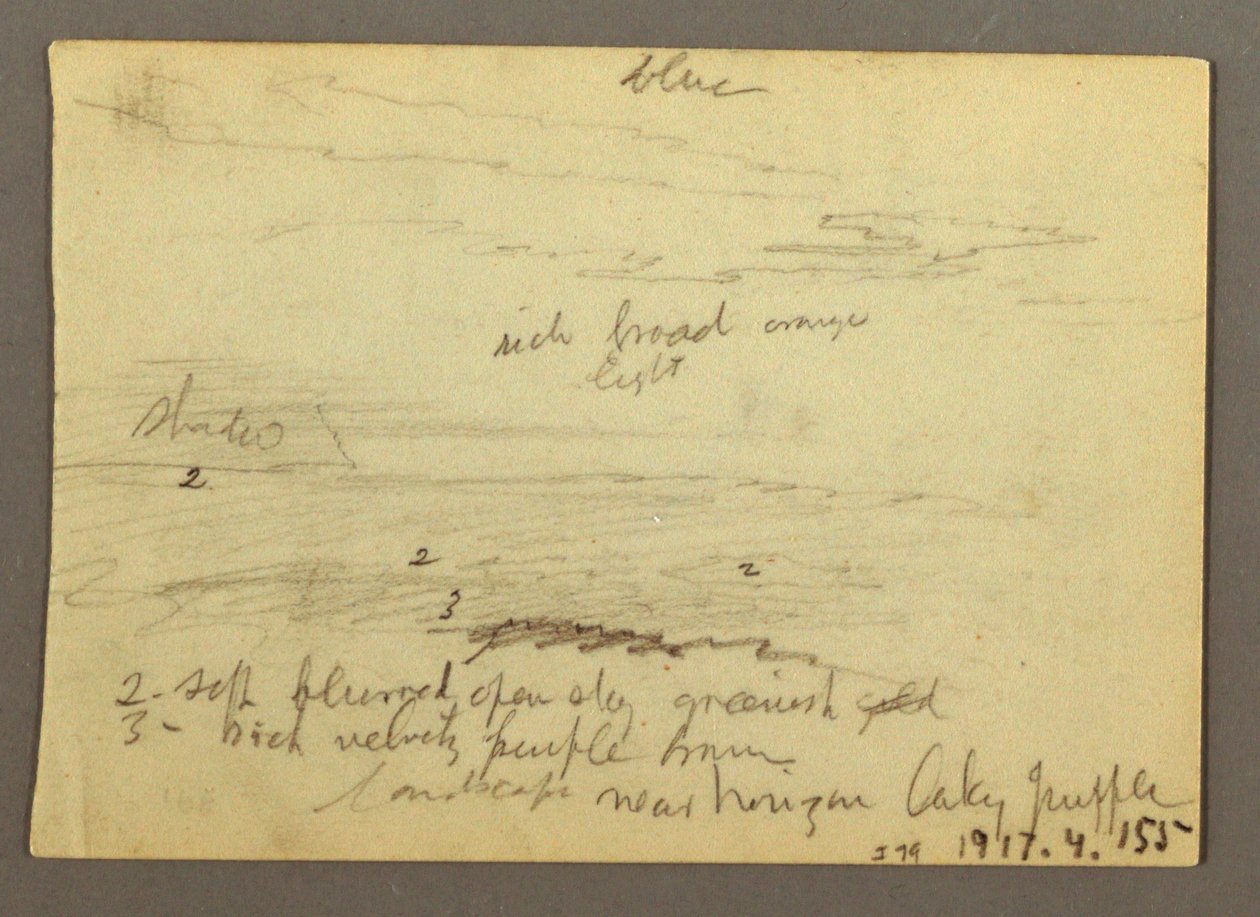 blue
rich broad orange
light
shades
2
2
2
3
2- soft blurred open sky greenish gold
3- rich velvety purple brown
Landscape near horizon Oaky
I 79 1917.4.155